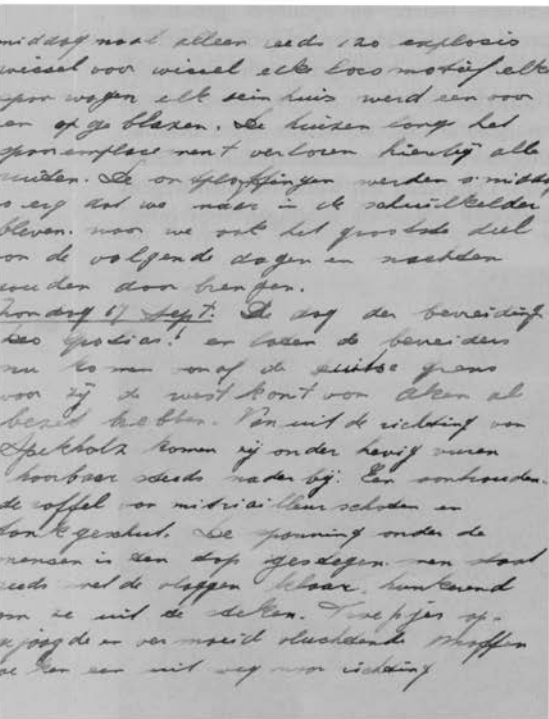 middag naal alleen reeds 120 explosis
wissel voor wissel elke locomotief elke
spoor wagen elk sein huis werd een voor
en op ge blazen. De huizen langs het
spoor emplace ment verloren hierbij alle
ruiten. De ontploffingen werden s midda
o erg dat we maar in de schuilkelder
bleven. waar we ook het grootste deel
van de volgende dagen en nachten
zouden door brengen.
Zondag 17 Sept. De dag der bevreiding
Deo Gratias! en laten de bevreiders
nu komen vanaf de duitse grens
waar zij de west kant van Aken al
bezet hebben. Van uit de richting van
Spekholz komen zij onder hevig vuren
hoorbaar steeds nader bij. Een aanhouden-
de roffel van mitriailleur schoten en
tank geschut. De spanning onder de
mensen is ten top gestegen. men staat
reeds met de vlaggen klaar, hunkerend
om ze uit te steken. Troepjes op-
ejaagde en ver moeid vluchtende moffen
oe ken een uit weg naar richting